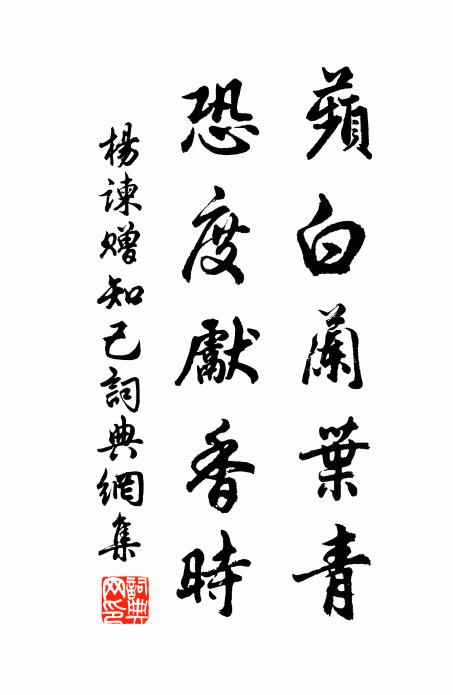 蘋白蘭葉青
恐度獻香時
楊諫贈知己詞典網集
詞典网印